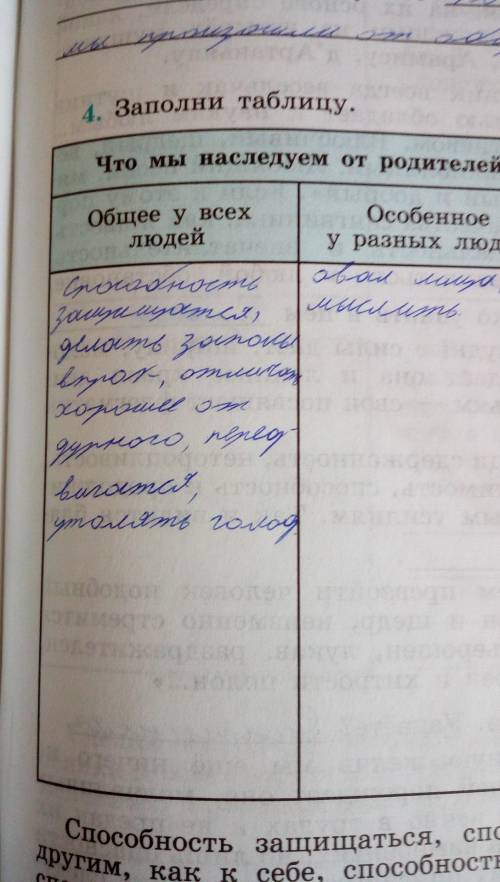 мы произошли от
4. Заполни таблицу.
Что мы наследуем от родителей
Общее у всех людей
Особенное у разных люд
Способность
защищатся,
делать запасы
впрок, отличать
хорошее от
дурного, перед
вигатся,
утолять голод
овал лица,
мыслить
Способность защищаться, спо
другим, как к себе, способност